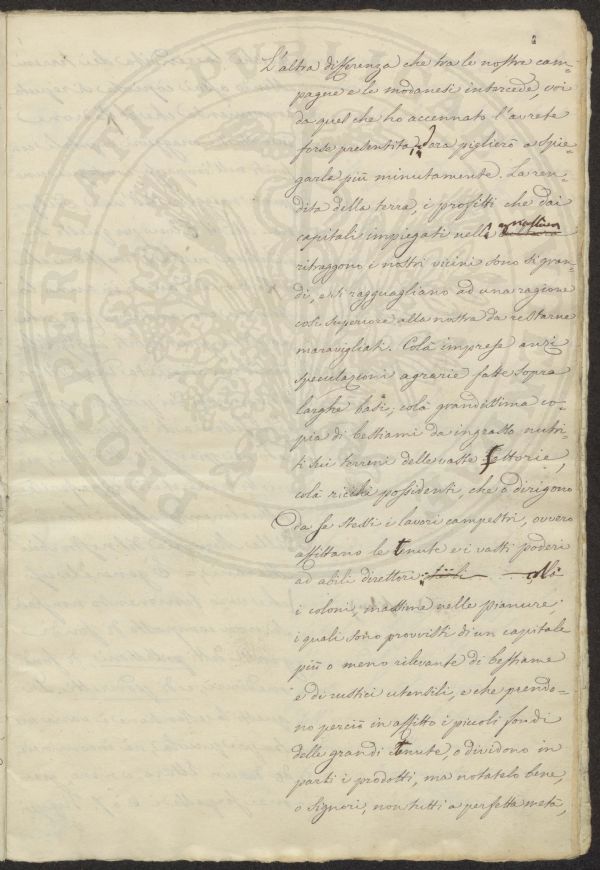 L'altra differenza che tra le nostre cam-
pagne e le modanesi intercede, voi
da quel che ho accennato l'avrete
forse presentita; ora piglierò a spie-
garla più minutamente. La ren-
dita della terra, i profitti che dai
capitali impiegati nell'
ritraggono i nostri vicini sono sì gran-
di, e si ragguagliano ad una ragione
così superiore alla nostra da restarne
maravigliati. Colà imprese anzi
speculazioni agrarie fatte sopra
larghe basi, colà grandissima co-
pia di bestiami da ingrasso nutri-
ti sui terreni delle vaste fattorie,
colà ricchi possidenti, che o dirigono
da se stessi i lavori campestri, ovvero
affittano le tenute e i vasti poderi
ad abili direttori;
i coloni, massime nelle pianure,
i quali sono provvisti di un capitale
più o meno rilevante di bestiame
e di rustici utensili, e che prendo-
no perciò in affitto i piccoli fondi
delle grandi tenute, o dividono in
parti i prodotti, ma notatelo bene,
o Signori, non tutti a perfetta metà,